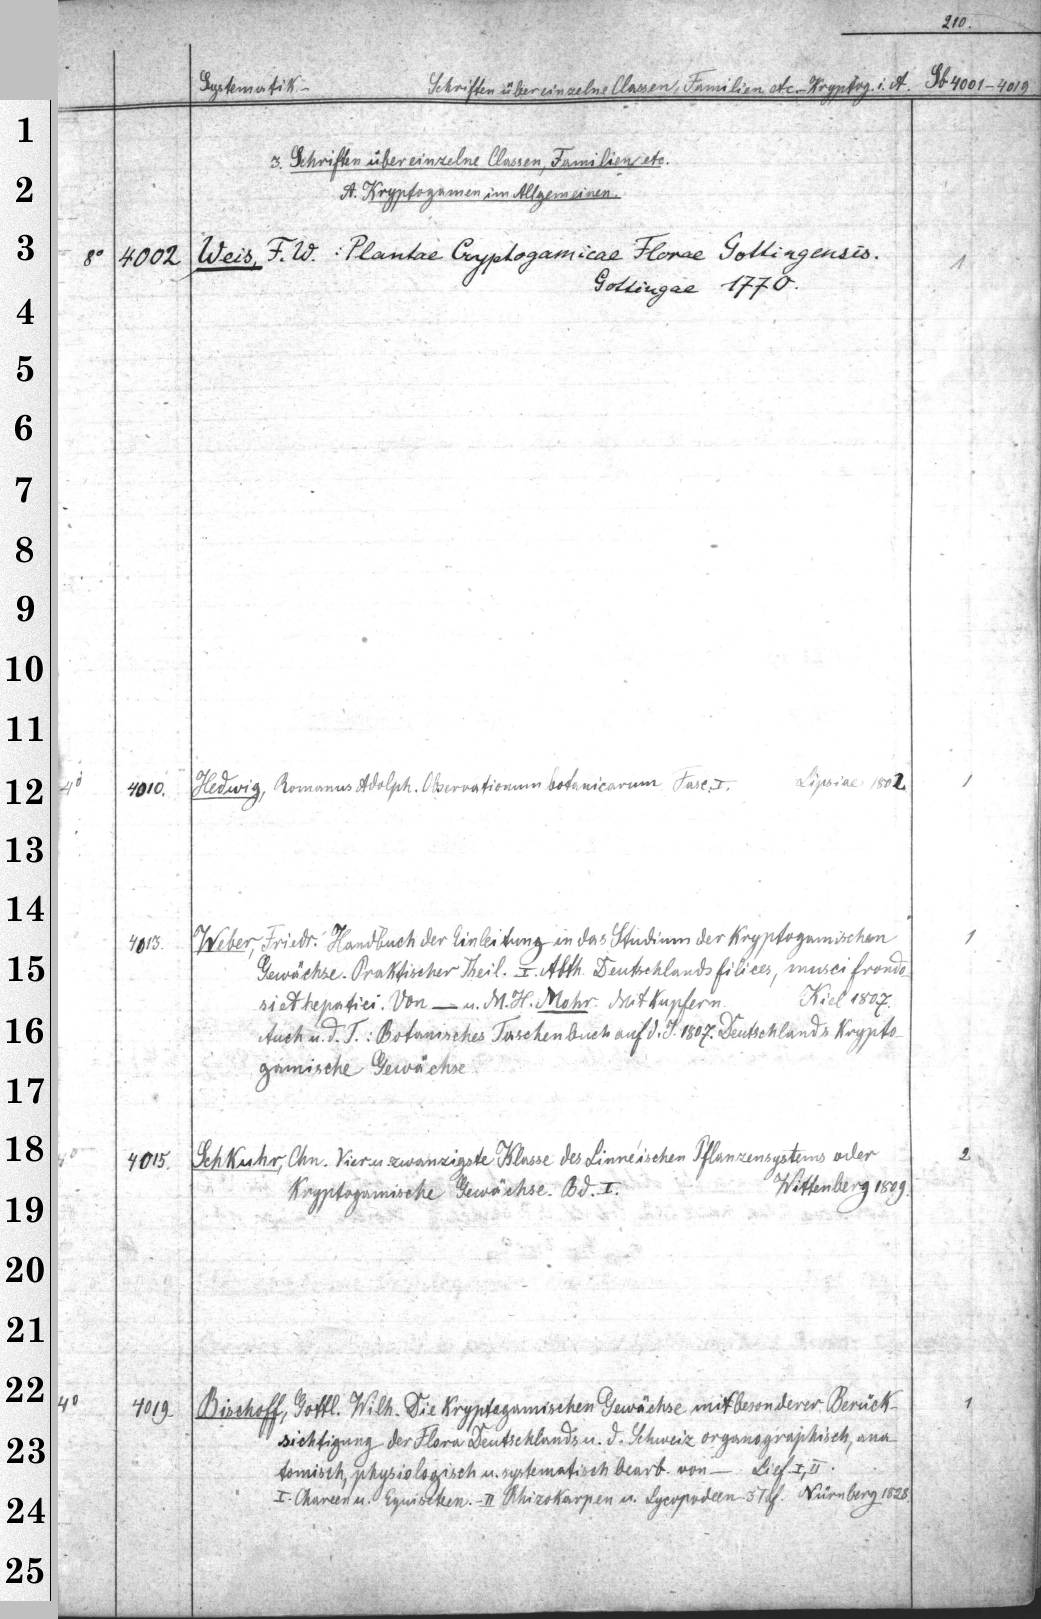 210.
Systematik – Schriften über einzelne Classen, Familien etc. – Kryptog. i. A. Sb 4001–4019
1
3. Schriften über einzelne Classen, Familien etc.
2
A. Kryptogamen im Allgemeinen.
3
8° 4002 Weis, F. W. : Plantae Cryptogamicae Florae Gottingensis. 1
Gottingae 1770.
4
5
6
7
8
9
10
11
12
4° 4010. Hedwig, Romanus Adolph. Observationum botanicarum Fasc. I. Lipsiae 1802 1
13
14
4013. Weber, Friedr. Handbuch der Einleitung in das Studium der Kryptogamischen 1
15
Gewächse. Praktischer Theil. I. Abth. Deutschlands filices, musci frondo-
si et hepatici. Von — u. M. H. Mohr. Mit Kupfern. Kiel 1807.
16
Auch u. d. T. : Botanisches Taschenbuch auf d. J. 1807. Deutschlands Krypto-
gamische Gewächse.
17
18
4° 4015. Schkuhr, Chn. Vier u. zwanzigste Klasse des Linnéischen Pflanzensystems oder 2
Kryptogamische Gewächse. Bd. I. Wittenberg 1809.
19
20
21
22
4° 4019 Bischoff, Gottl. Wilh. Die Kryptogamischen Gewächse mit besonderer Berück- 1
sichtigung der Flora Deutschlands u. d. Schweiz organographisch, ana-
23
tomisch, physiologisch u. systematisch bearb. von — Lief. I, II.
I. Chareen u. Equiseteen. – II Rhizokarpen u. Lycopodeen 3 Taf. Nürnberg 1828.
24
25